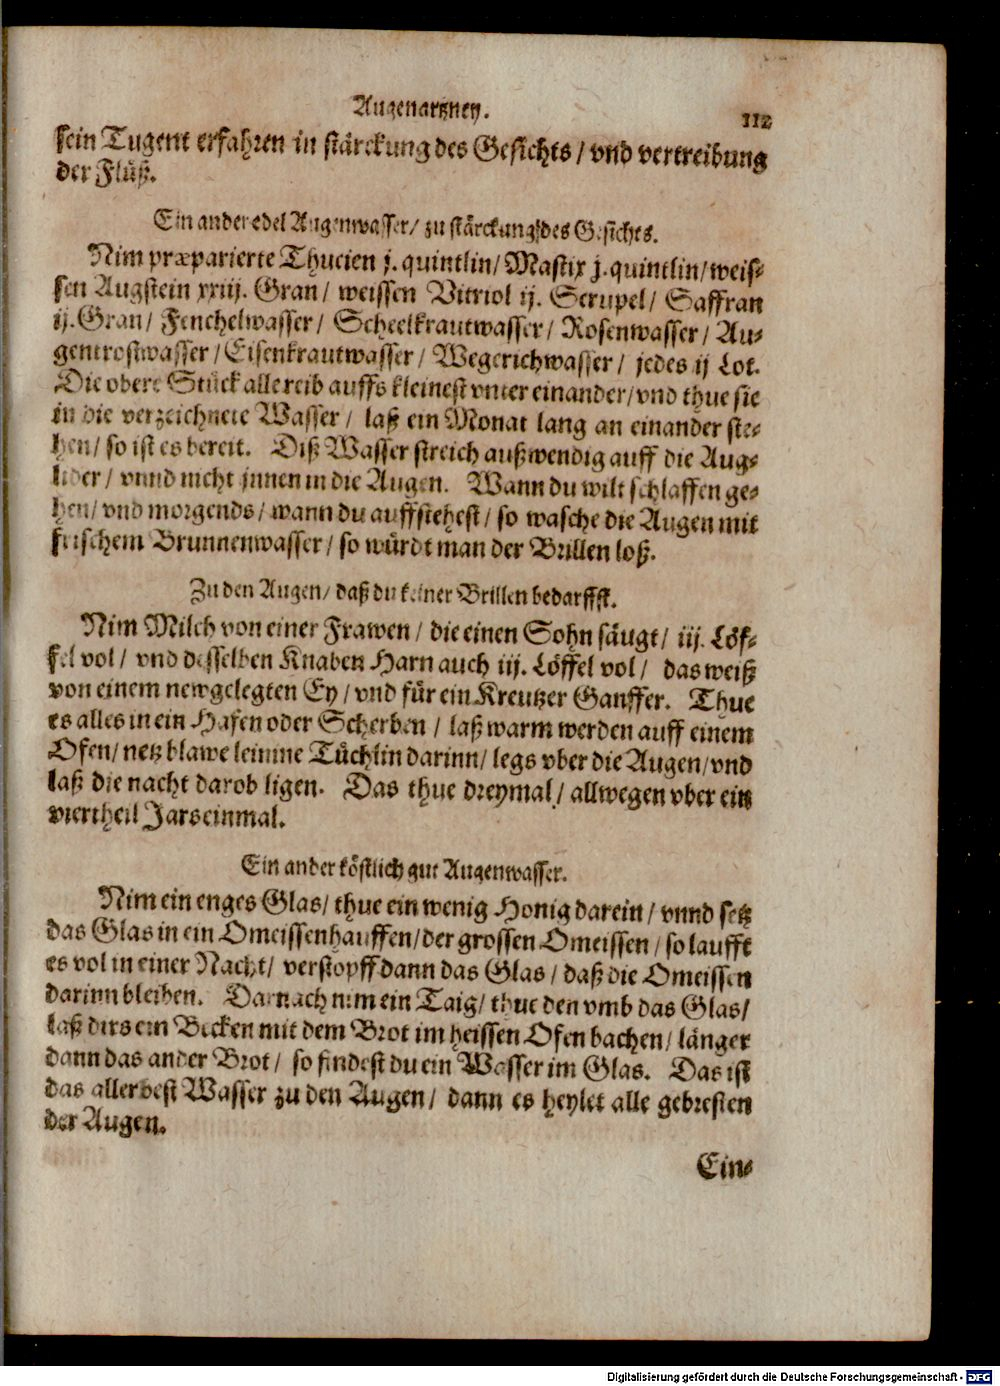 Augenartzney.
112
sein Tugent erfahren in stärckung des Gesichts / vnd vertreibung
der Flüß.
Ein ander edel Augenwasser / zu stärckung des Gesichts.
Nim præparierte Thucien j. quintlin / Mastix j. quintlin / weis⸗
sen Augstein xxiij. Gran / weissen Vitriol ij. Scrupel / Saffran
ij. Gran / Fenchelwasser / Scheelkrautwasser / Rosenwasser / Au⸗
gentrostwasser / Eisenkrautwasser / Wegerichwasser / jedes ij Lot.
Die obere Stück alle reib auffs kleinest vnter einander / vnd thue sie
in die verzeichnete Wasser / laß ein Monat lang an einander ste⸗
hen / so ist es bereit. Diß Wasser streich außwendig auff die Aug⸗
lider / vnnd nicht jnnen in die Augen. Wann du wilt schlaffen ge⸗
hen / vnd morgends / wann du auffstehest / so wasche die Augen mit
frischem Brunnenwasser / so würdt man der Brillen loß.
Zu den Augen / daß du keiner Brillen bedarffst.
Nim Milch von einer Frawen / die einen Sohn säugt / iij. Löf⸗
fel vol / vnd desselben Knaben Harn auch iij. Löffel vol / das weiß
von einem newgelegten Ey / vnd für ein Kreutzer Ganffer. Thue
es alles in ein Hafen oder Scherben / laß warm werden auff einem
Ofen / netz blawe leinine Tüchlin darinn / legs vber die Augen / vnd
laß die nacht darob ligen. Das thue dreymal / allwegen vber ein
viertheil Jars einmal.
Ein ander köstlich gut Augenwasser.
Nim ein enges Glas / thue ein wenig Honig darein / vnnd setz
das Glas in ein Omeissenhauffen / der grossen Omeissen / so laufft
es vol in einer Nacht / verstopff dann das Glas / daß die Omeissen
darinn bleiben. Darnach nim ein Taig / thue den vmb das Glas /
laß dirs ein Becken mit dem Brot im heissen Ofen bachen / länger
dann das ander Brot / so findest du ein Wasser im Glas. Das ist
das aller best Wasser zu den Augen / dann es heylet alle gebresten
der Augen.
Ein⸗
Digitalisierung gefördert durch die Deutsche Forschungsgemeinschaft - DFG